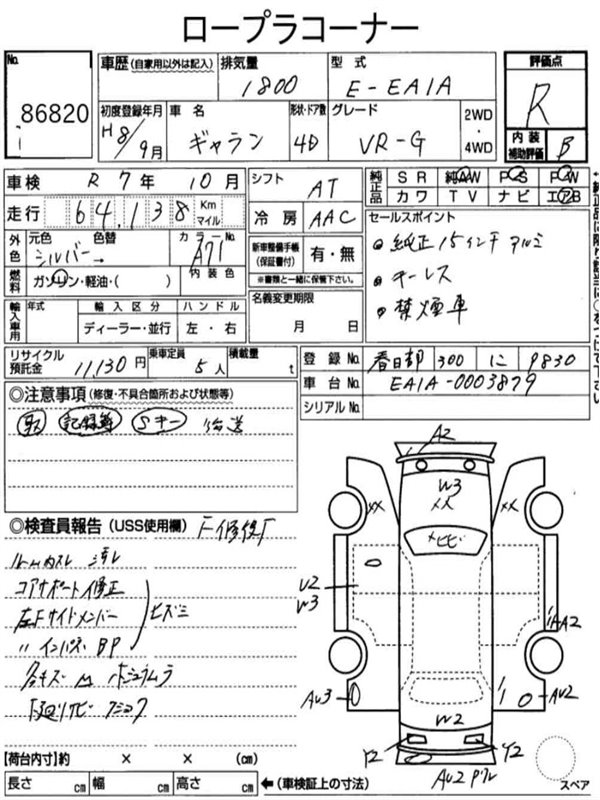 ロープラコーナー
No.
86820
車歴 (自家用以外は記入)
排気量
1800
型式
E-EA1A
評価点
R
内装
補助評価
B
初度登録年月
H8/9月
車名
ギャラン
形状・ドア数
4D
グレード
VR-G
2WD
・
4WD
車検 R 7年 10月
走行 64,138 Km
マイル
シフト
AT
冷房
AAC
純正品
SR 純AW PS PW
カワ TV ナビ エアB
セールスポイント
純正15インチアルミ
キーレス
禁煙車
外色
元色 色替
シルバー→
カラーNo.
A71
燃料
ガソリン・軽油・( )
内装色
新車整備手帳
(保証書付)
有・無
※書類と一緒に保管下さい。
名義変更期限
月 日
輸入車用
年式
輸入区分
ディーラー・並行
ハンドル
左・右
リサイクル
預託金
11,130円
乗車定員
5人
積載量
t
登録No. 春日部 300 に 9830
車台No. EA1A-0003879
シリアルNo.
◎注意事項 (修復・不具合箇所および状態等)
取 記録簿 Sキー 後送
◎検査員報告 (USS使用欄) F修復有
コアサポート修正
左Fサイドメンバー
〃インパネ BP
ヒズミ
A2
W3
XX
XX
XX
U2
W3
AA2
AU3
AU2
W2
Y2
Y2
AU2
スペア
【荷台内寸】約 × × (cm)
長さ cm 幅 cm 高さ cm ←(車検証上の寸法)